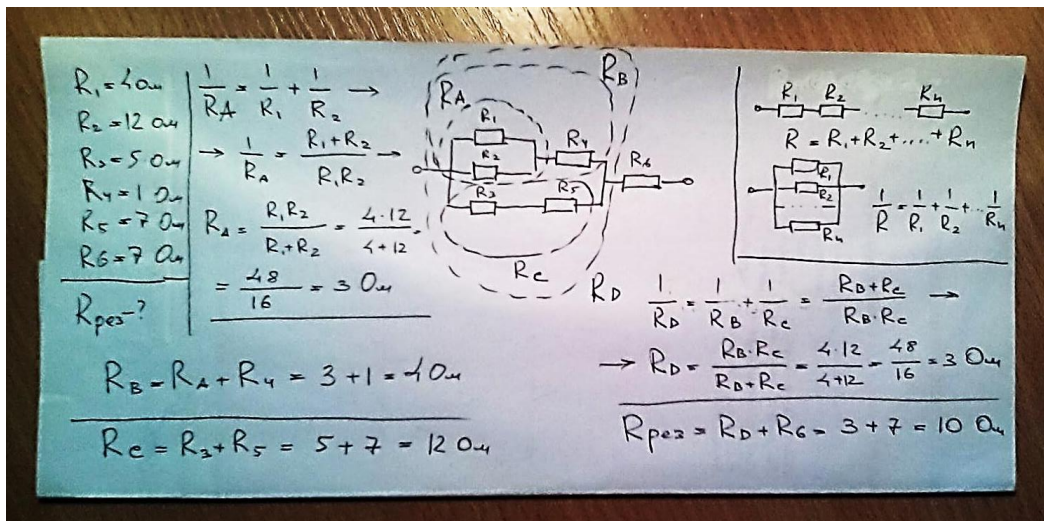 R₁=4Ом
R₂=12 Ом
R₃=5 Ом
R₄=1 Ом
R₅=7 Ом
R6=7 Ом
Rрез-?
1/RA = 1/R₁ + 1/R₂ →
→ 1/RA = (R₁+R₂)/(R₁R₂) →
RA = (R₁R₂)/(R₁+R₂) = (4·12)/(4+12) =
= 48/16 = 3 Ом
RB = RA + R4 = 3 + 1 = 4Ом
Rc = R3 + R5 = 5 + 7 = 12 Ом
RA
RB
R1
R2
R4
R3
R5
R6
Rc
RD
R1 R2 Rn
R = R₁+R₂+....+Rn
R1
R2
Rn
1/R = 1/R₁ + 1/R₂ + ... 1/Rn
1/RD = 1/RB + 1/Rc = (RB+Rc)/(RB·Rc) →
→ RD = (RB·Rc)/(RB+Rc) = (4·12)/(4+12) = 48/16 = 3 Ом
Rрез = RD + R6 = 3 + 7 = 10 Ом